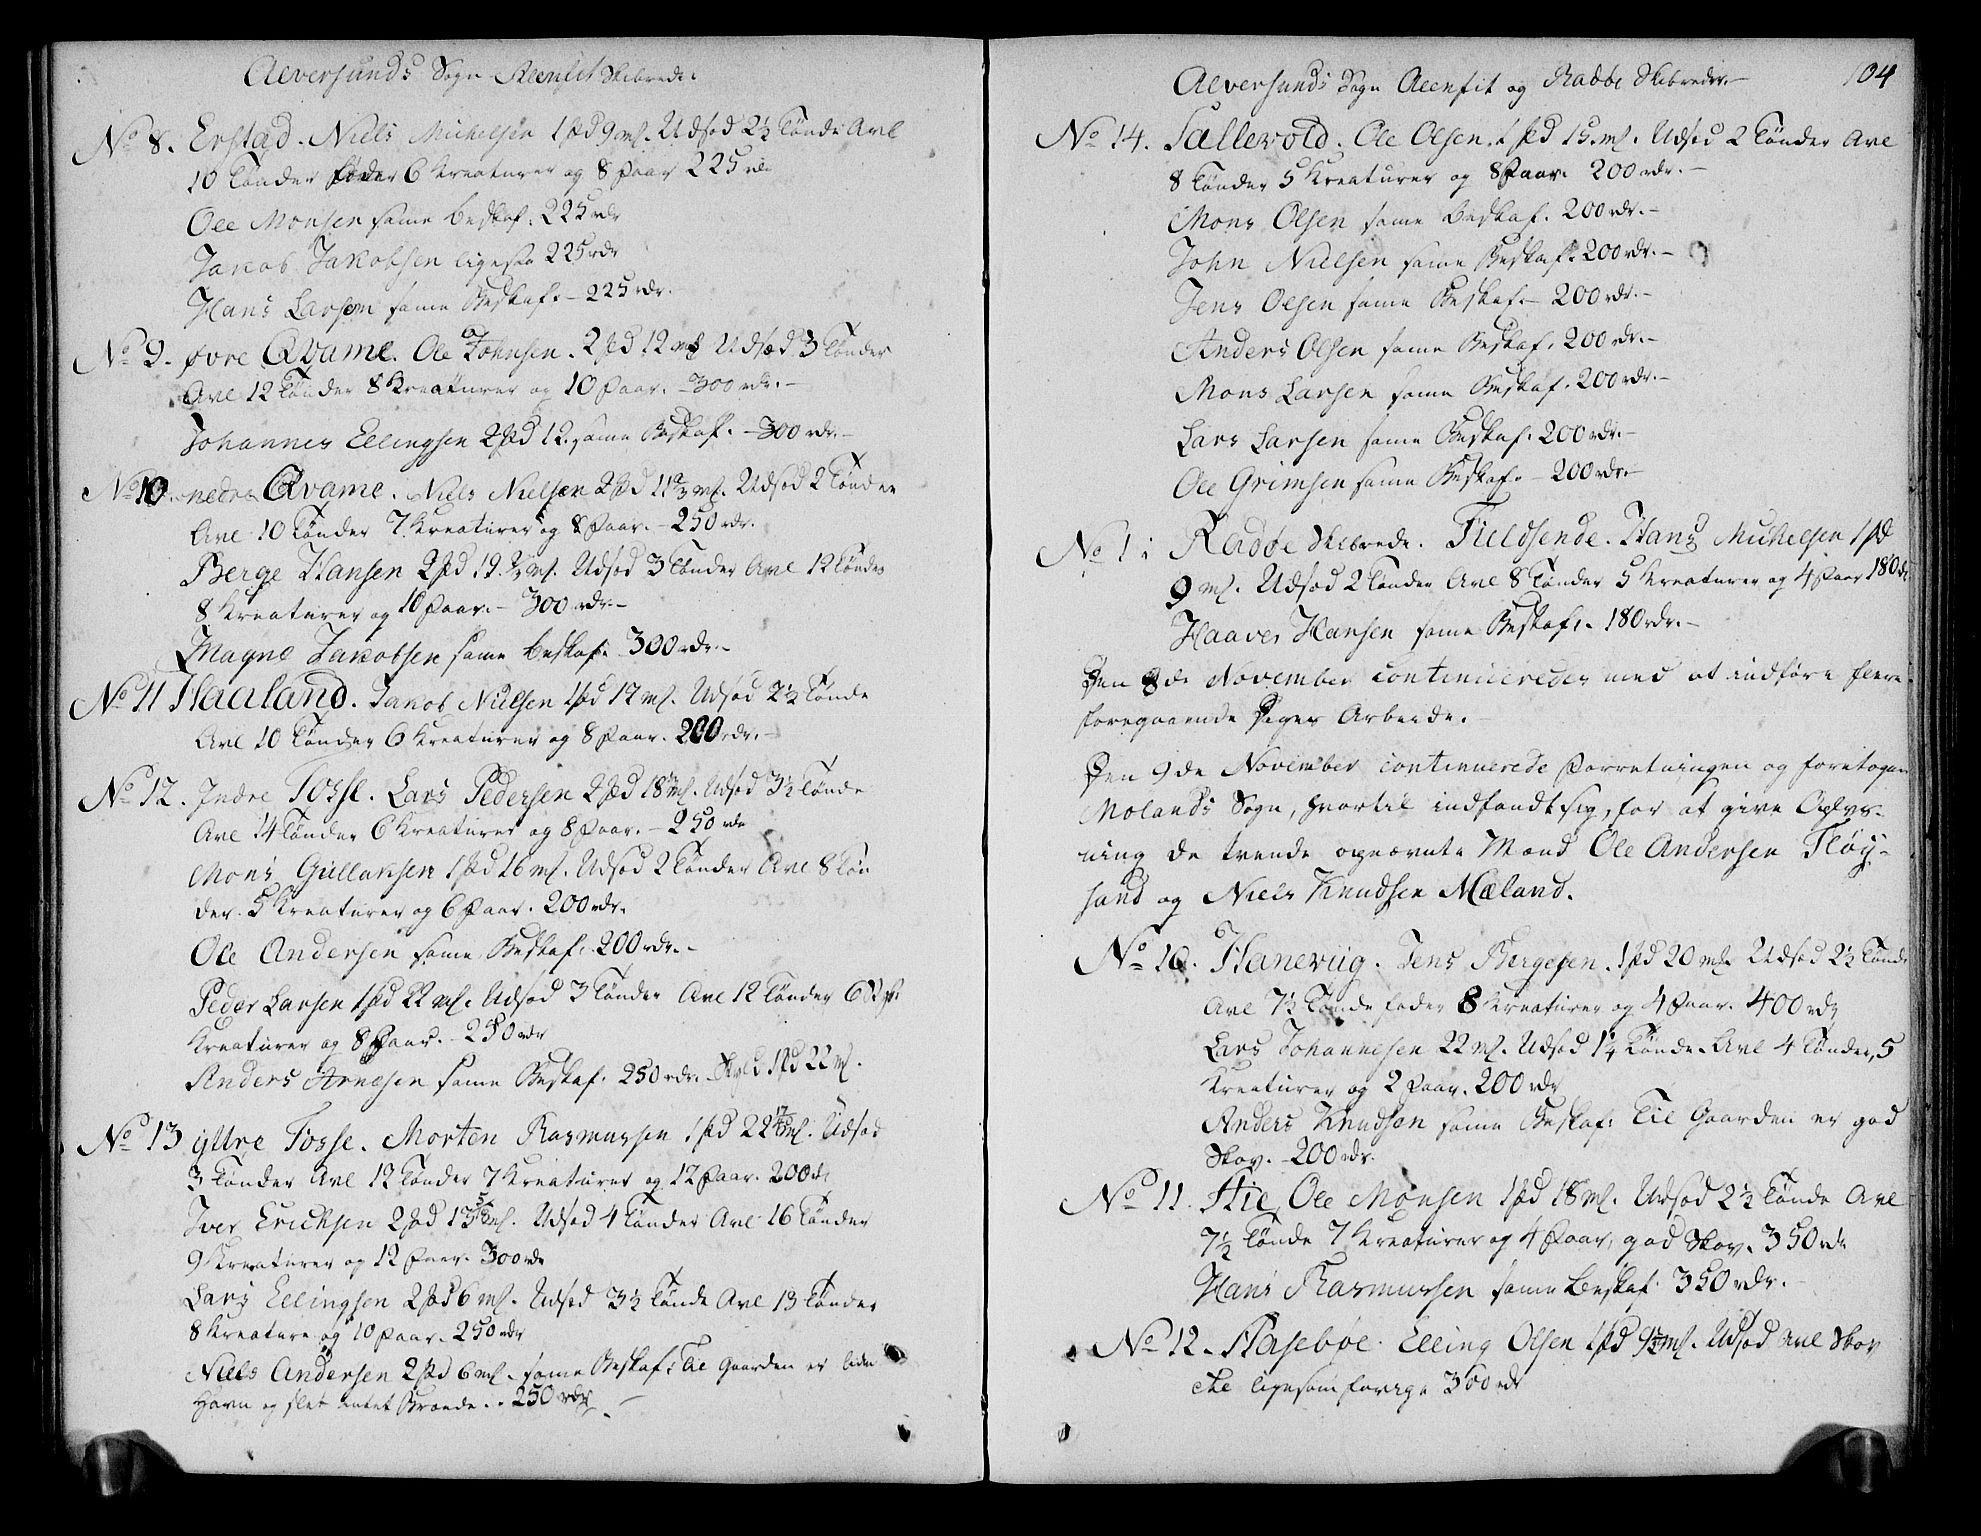 Alversunds Sogn Alenfit Skibrede.
No 8. Erstad. Niels Michelsen 1 pd 9 mk. Udsæd 2½ Tønde Avl
10 Tønder føder 6 Kreaturer og 8 Faar 225 rdr
Ole Monsen same beskaf. 225 rdr
Jacob Jakobsen ligesaa 225 rdr
Hans Larsen same Beskaf. - 225 rdr.
No 9. øvre Qvame. Ole Johnsen. 2 pd 12 mk Udsæd 3 Tønder
Avl 12 Tønder 8 Kreaturer og 10 Faar. - 300 rdr. -
Johannes Ellingsen 2 pd 12. same Beskaf. - 300 rdr. -
No 10. nedre Qvame. Niels Nielsen 2 pd 11⅔ mk. Udsæd 2 Tønder
Avl 10 Tønder 7 Kreaturer og 8 Faar. - 250 rdr.
Berge Hansen 2 pd 19. ½ mk. Udsæd 3 Tønder Avl 12 Tønder
8 Kreaturer og 10 Faar. - 300 rdr. -
Magne Jakobsen same beskaf. 300 rdr. -
No 11 Haaland. Jakob Nielsen 1 pd 17 mk. Udsæd 2½ Tønde
Avl 10 Tønder 6 Kreaturer og 8 Faar. 200 rdr. -
No 12. Indre Fosse. Lars Pedersen 2 pd 18 mk. Udsæd 3½ Tønde
Avl 14 Tønder 6 Kreaturer og 8 Faar. - 250 rdr
Mons Gullaksen 1 pd 16 mk. Udsæd 2 Tønder Avl 8 Tøn
der. 5 Kreaturer og 6 Faar. 200 rdr.
Ole Andersen same Beskaf. 200 rdr. -
Peder Larsen 1 pd 22 mk. Udsæd 3 Tønder Avl 12 Tønder 6
Kreaturer og 8 Faar. - 250 rdr
Anders Arnesen same Beskaf. 250 rdr. Skyld 1 pd 22 mk.
No 13 yttre Fosse. Morten Rasmussen 1 pd 22 mk. Udsæd
3 Tønder Avl 12 Tønder 7 Kreaturer og 12 Faar. 200 dr
Iver Erichsen 2 pd 13 mk. Udsæd 4 Tønder Avl 16 Tønder
9 Kreaturer og 12 Faar. 300 rdr
Lars Ellingsen 2 pd 6 mk. Udsæd 3½ Tønde Avl 13 Tønder
8 Kreature og 10 Faar. 250 rdr
Niels Andersen 2 pd 6 mk. same Beskaf: Til Gaarden er liden
Havn og slet intet Brænde. . 250 rdr
Alversunds Sogn Alenfit og Radøe Skibreder. - 104
No 14. Sællevold. Ole Olsen. 1 pd 15. mk. Udsæd 2 Tønder Avl
8 Tønder 5 Kreaturer og 8 Faar. 200 rdr. -
Mons Olsen same beskaf. 200 rdr. -
John Nielsen same Beskaf. 200 rdr. -
Jens Olsen same Beskaf. - 200 rdr. -
Anders Olsen same Beskaf. 200 rdr. -
Mons Larsen same Beskaf. 200 rdr. -
Lars Larsen same Beskaf. 200 rdr. -
Ole Grimsen same Beskaf. - 200 rdr. -
No 1: Radøe Skibrede. Fieldsende. Hans Michelsen 1 pd
9 mk. Udsæd 2 Tønder Avl 8 Tønder 5 Kreaturer og 4 Faar 180 dr
Haaver Hansen same Beskaf. - 180 rdr. -
Den 8de November continueredes med at indføre fleere
foregaaende Dages Arbeide. -
Den 9de November continuerede Forretningen og foretoges
Molands Sogn, hvortil indfandt sig, for at give Oplys-
ning de tvende opnævnte Mænd Ole Andersen Fløy-
sand og Niels Knudsen Mæland.
No 10. Hanevug. Jens Bergesen. 1 pd 20 mk. Udsæd 2½ Tønde
Avl 7½ Tønde føder 8 Kreaturer og 4 Faar. 400 rdr
Lars Johannesen 22 mk. Udsæd 1¼ Tønde. Avl 4 Tønder, 5
Kreaturer og 2 Faar. 200 rdr
Anders Knudsen same Beskaf: Til Gaarden er god
Skov. - 200 rdr.
No 11. Hie, Ole Monsen 1 pd 18 mk. Udsæd 2½ Tønde Avl
7½ Tønde 7 Kreaturer og 4 Faar, god Skov. 350 rdr
Hans Rasmussen same beskaf. 350 rdr. -
No 12. Hasebøe. Elling Olsen 1 pd 9½ mk. Udsæd Avl Skov
etc ligesom forrige 300 rdr